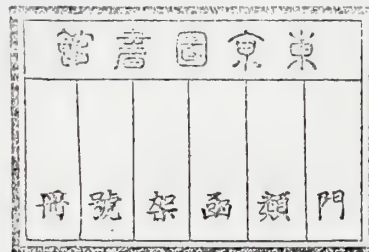 東京圖書館
門類函架號冊